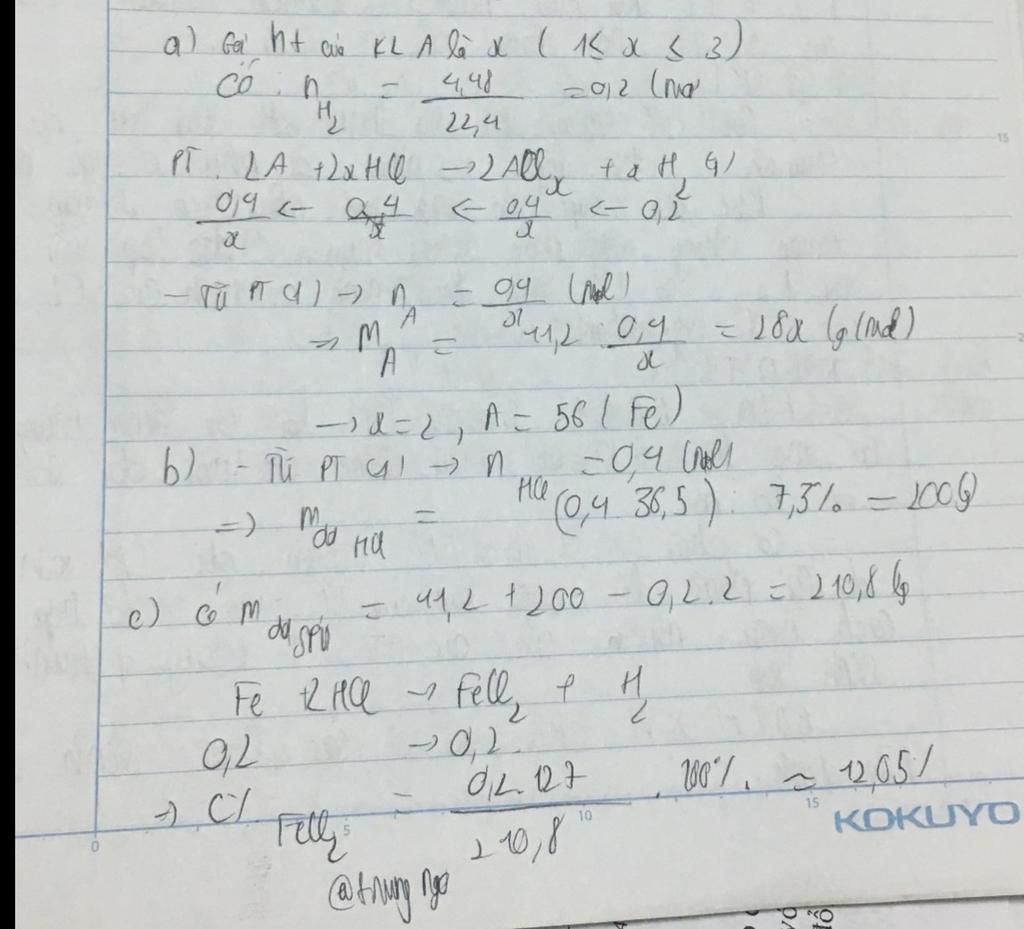 a) Gọi ht của KL A là x ( 1≤ x ≤ 3)
Có : n H2 = 4,48/22,4 = 0,2 (mol
PT. 2A + 2xHCl → 2AClx + x H2 (1)
0,4/x ← 0,4 ← 0,4/x ← 0,2
- Từ PT (1) → nA = 0,4/x (mol)
⇒ MA = 11,2 : 0,4/x = 28x (g/mol)
→ x = 2, A = 56 (Fe)
b) - Từ PT (1) → nHCl = 0,4 (mol)
⇒ mdd HCl = (0,4 36,5) : 7,3% = 200(g)
c) Có mdd SPƯ = 11,2 + 200 - 0,2.2 = 210,8 (g
Fe + 2HCl → FeCl2 + H2
0,2 → 0,2.
⇒ C% FeCl2 = 0,2.127/210,8 . 100% ≈ 12,05%
0 5 10 15
KOKUYO
@trung ngo